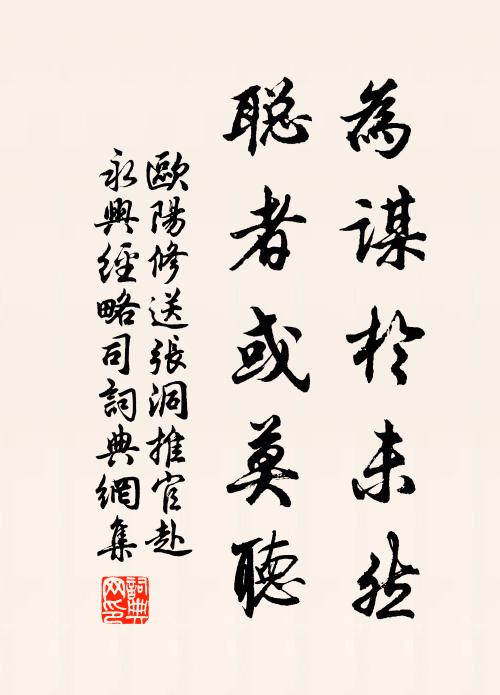 為謀於未然
聰者或莫聽
歐陽修送張洞推官赴
永興經略司詞典網集
詞典網印